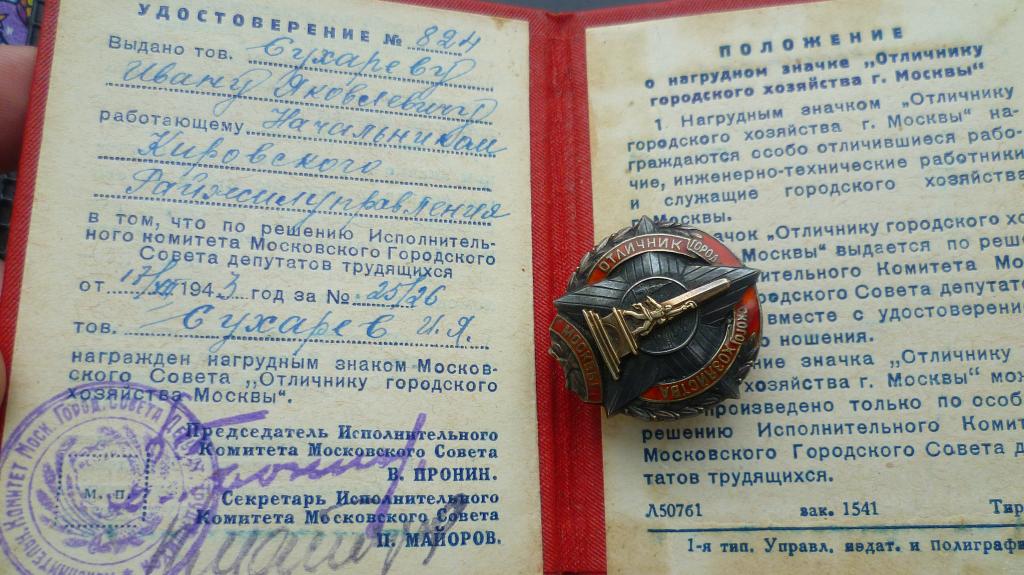 УДОСТОВЕРЕНИЕ № 824
Выдано тов. Сухареву
Ивану Яковлевичу
работающему Начальником
Кировского
Райжилуправления
в том, что по решению Исполнитель-
ного комитета Московского Городского
Совета депутатов трудящихся
от 17/VII 1943 год за № 25/26
тов. Сухарев И.Я.
награжден нагрудным знаком Москов-
ского Совета „Отличнику городского
хозяйства Москвы“.
Председатель Исполнительного
Комитета Московского Совета
В. ПРОНИН.
Секретарь Исполнительного
Комитета Московского Совета
П. МАЙОРОВ.
М. П.
КОМИТЕТ МОСК. ГОРОД. СОВЕТА
ПОЛОЖЕНИЕ
о нагрудном значке „Отличнику
городского хозяйства г. Москвы“
1 Нагрудным значком „Отличнику
городского хозяйства г. Москвы“ на-
граждаются особо отличившиеся рабо-
чие, инженерно-технические работники
и служащие городского хозяйства
Москвы.
чок „Отличнику городского хо
Москвы“ выдается по реше
ительного Комитета Мо
родского Совета депутато
вместе с удостоверени
ношения.
ние значка „Отличнику
хозяйства г. Москвы“ мож
произведено только по особ
решению Исполнительного Комитета
Московского Городского Совета д
татов трудящихся.
Л50761 зак. 1541 Тир
1-я тип. Управл. издат. и полиграфи
ОТЛИЧНИК ГОРОД
СКОГО ХОЗЯЙСТВА
МОСКВЫ